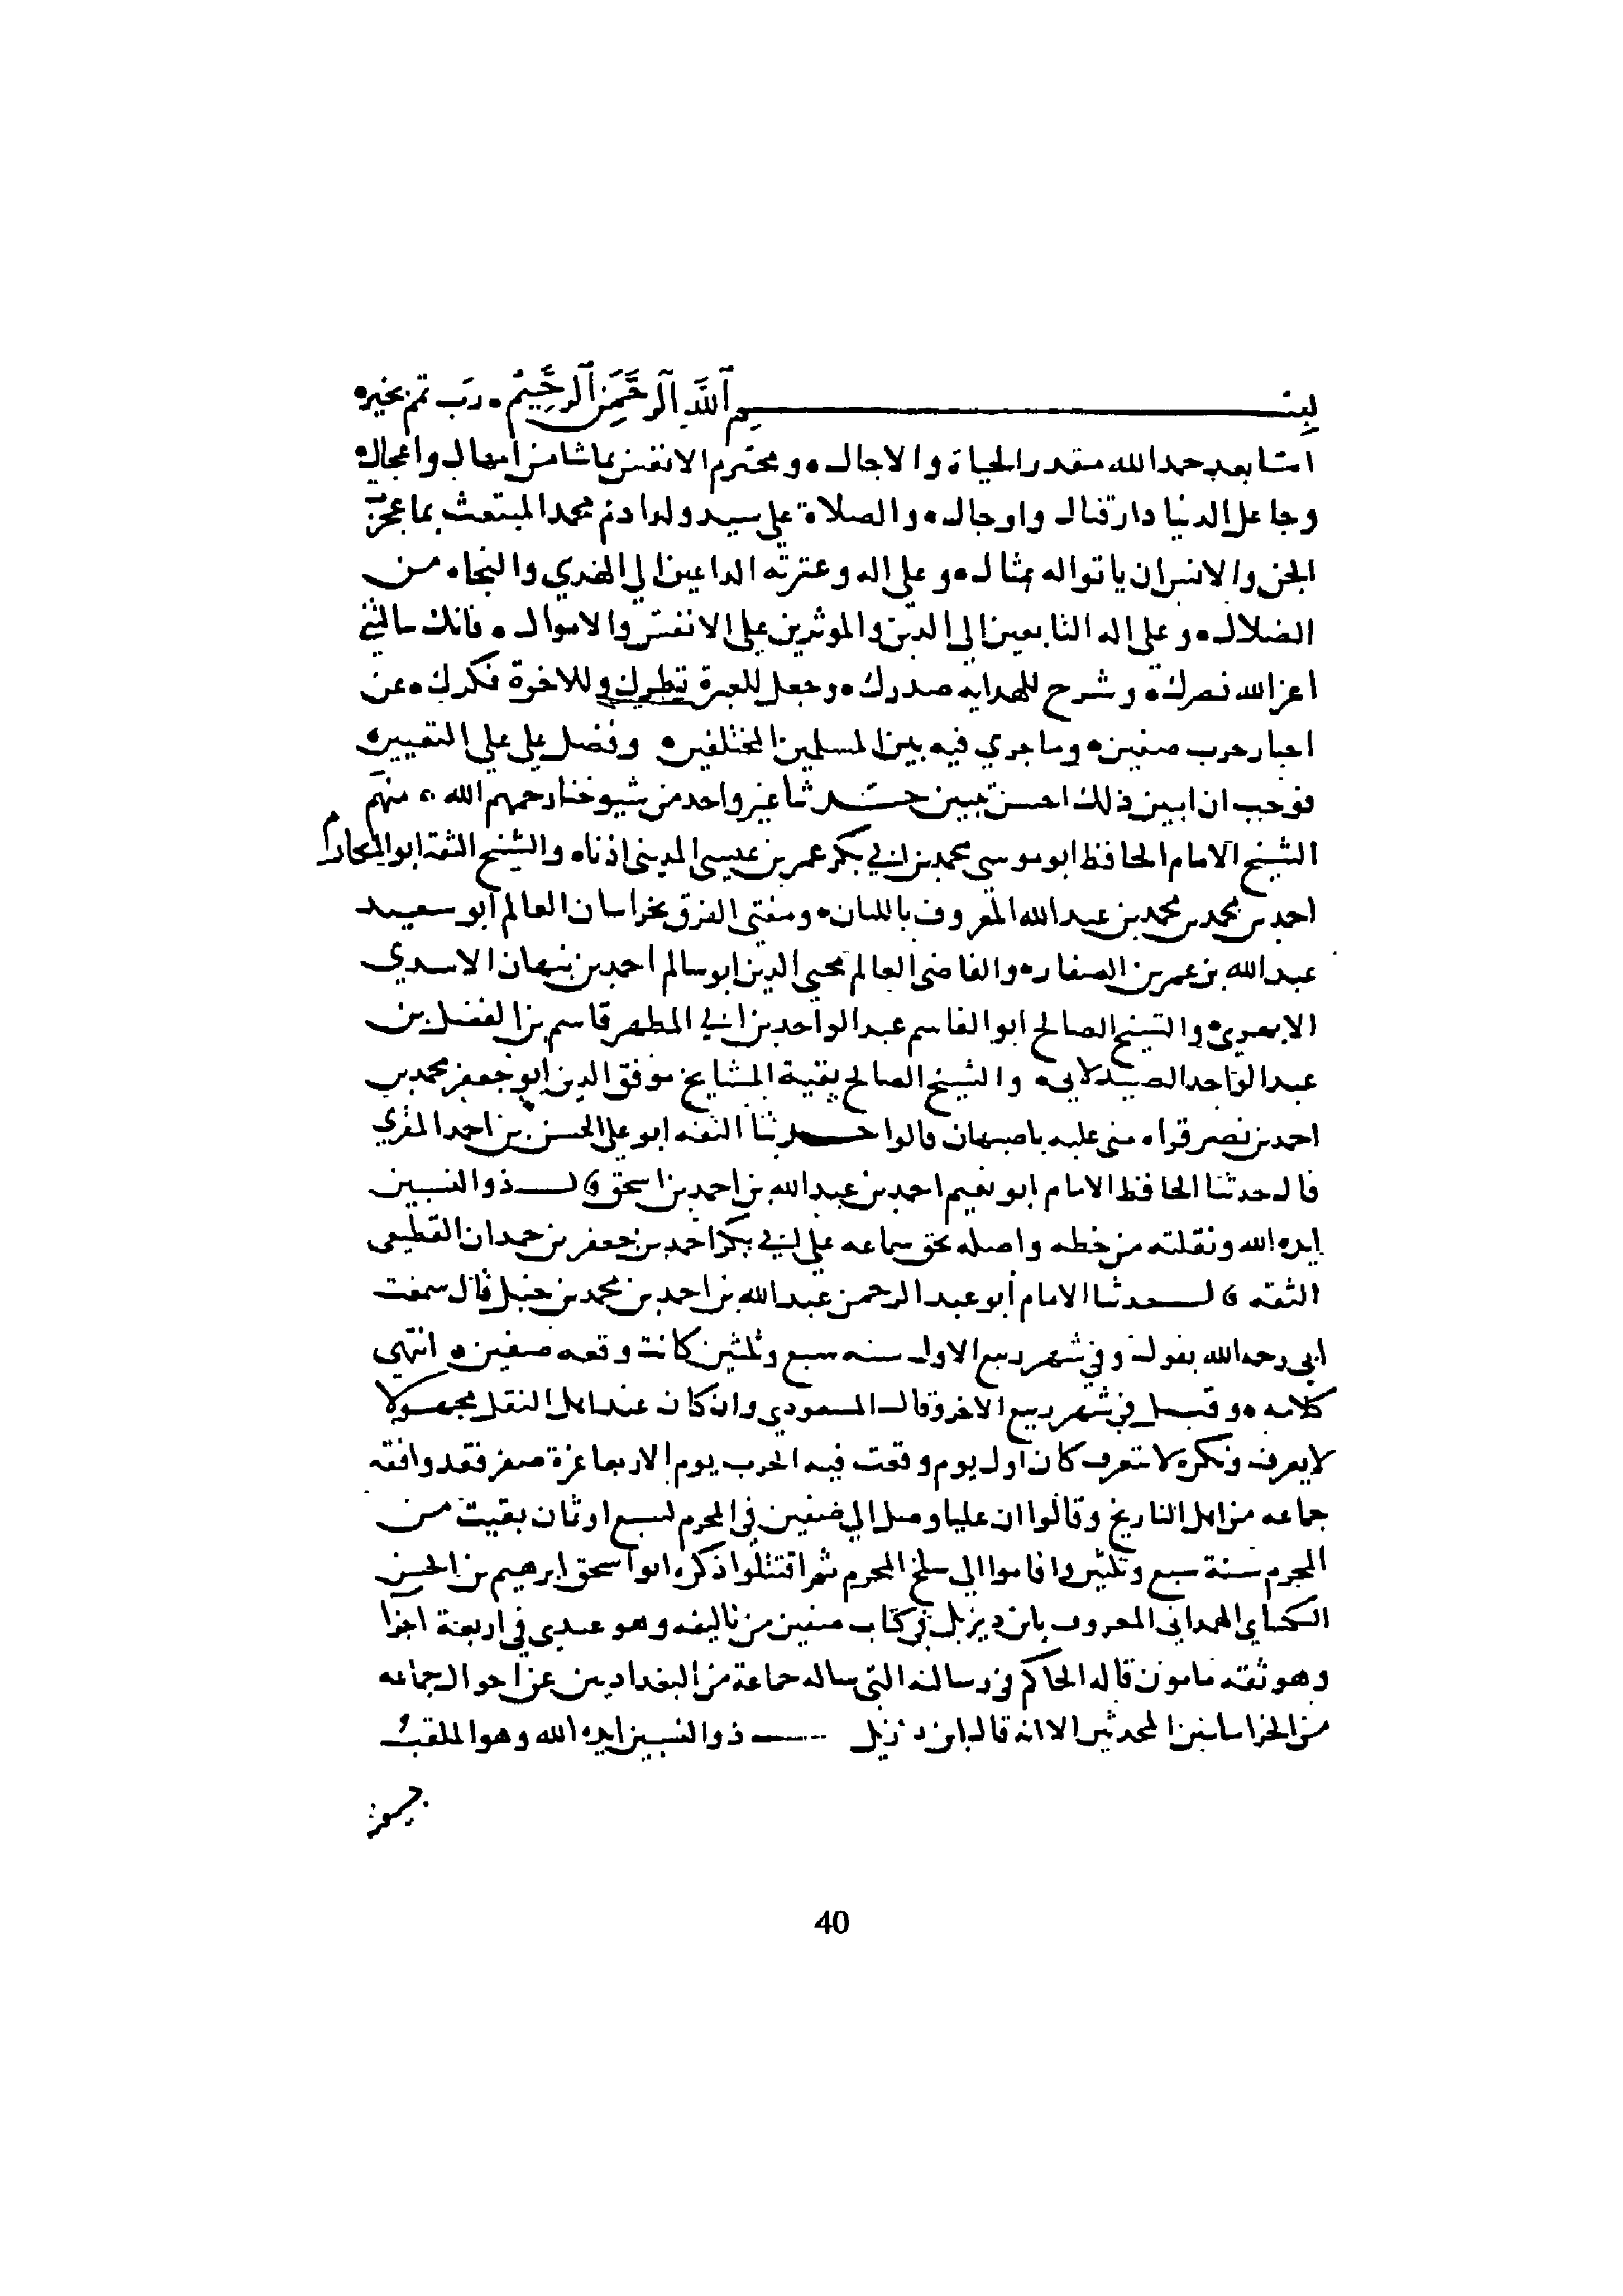 بسم الله الرحمن الرحيم ۰ رب تمم بخير ۰
اما بعد حمد الله مقدر الحياة والاجال ۰ ومخترم الانفس بما شا من امهال واعجال ۰
وجاعل الدنيا دار قتال واوجال ۰ والصلاة على سيد ولد ادم محمد المبتعث بما عجز
الجن والانس ان ياتوا له بمثال ۰ وعلى اله وعترته الداعين الى الهدي والنجاه من
الضلال ۰ وعلى اله التابعين الى الدين والموثرين على الانفس والاموال ۰ فانك سالتني
اعز الله نصرك ۰ وشرح للهدايه صدرك ۰ وجعل للعبرة نظرك وللاخرة فكرك ۰ عن
اخبار حرب صفين ۰ وما جري فيه بين المسلمين المختلفين ۰ وفضل علي على التعيين ۰
فوجب ان ابين ذلك احسن تبيين حدثنا غير واحد من شيوخنا رحمهم الله ۰ منهم
الشيخ الامام الحافظ ابو موسى محمد بن ابي بكر عمر بن عيسى المديني اذنا ۰ والشيخ الثقة ابو المكارم
احمد بن محمد بن محمد بن عبد الله المعروف باللبان ۰ ومفتي الفرق بخراسان العالم ابو سعيد
عبد الله بن عمر بن الصفار ۰ والقاضي العالم محيي الدين ابو سالم احمد بن نبهان الاسدي
الابهري ۰ والشيخ الصالح ابو القاسم عبد الواحد بن ابي المطهر قاسم بن الفضل بن
عبد الواحد الصيدلاني ۰ والشيخ الصالح بقية المشايخ موفق الدين ابو جعفر محمد بن
احمد بن نصر قراه مني عليه باصبهان قالوا حدثنا الثقه ابو علي الحسن بن احمد المقري
قال حدثنا الحافظ الامام ابو نعيم احمد بن عبد الله بن احمد بن اسحق قال ذو النسبين
ايده الله ونقلته من خطه واصله بحق سماعه على ابي بكر احمد بن جعفر بن حمدان القطيعي
الثقه قال حدثنا الامام ابو عبد الرحمن عبد الله بن احمد بن محمد بن حنبل قال سمعت
ابي رحمه الله يقول ۰ وفي شهر ربيع الاول سنه سبع وثلثين كانت وقعه صفين ۰ انتهى
كلامه ۰ وقيل في شهر ربيع الاخر وقال المسعودي وان كان عند اهل النقل مجهولا
لا يعرف ونكرة لا تتعرف كان اول يوم وقعت فيه الحرب يوم الاربعا غرة صفر فقد وافقه
جماعه من اهل التاريخ وقالوا ان عليا وصل الي صفين في المحرم لسبع او ثمان بقيت من
المحرم سنة سبع وثلثين واقاموا الي سلخ المحرم ثم اقتتلوا ذكره ابو اسحق ابرهيم بن الحسين
الكسائي الهمداني المعروف بابن ديزيل في كتاب صفين من تاليفه وهو عندي في اربعة اجزا
وهو ثقه مامون قاله الحاكم في رسالته التي ساله جماعة من البغداديين عن احوال جماعه
من الخراسانيين المحدثين الا انه قال ابن ديزيل ذو النسبين ايده الله وهو الملقب
40